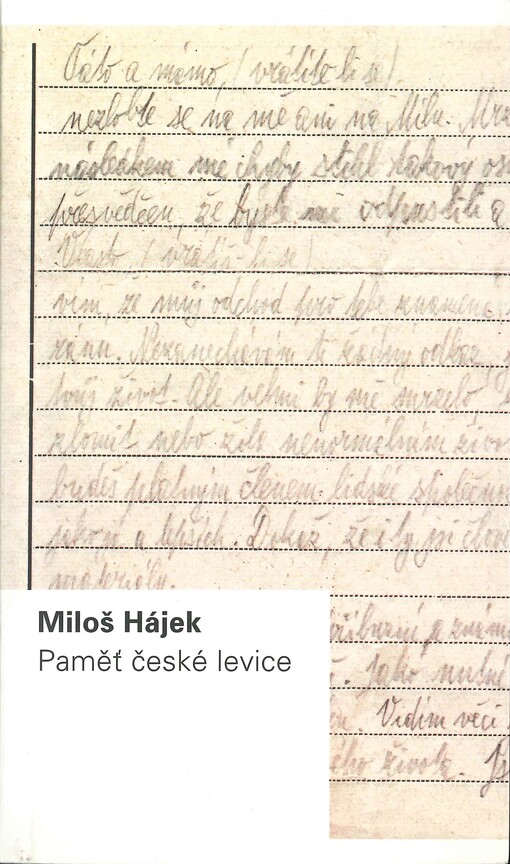 Táto a mámo, (vrátíte-li se).
nezlobte se na mě ani na Mílu. Mrz
následkem mé chyby stihl takový os
přesvědčen, že byste mi odpustili a
Vlasto, (vrátíš-li se)
vím, že můj odchod pro tebe znamená
ránu. Nezanechávám ti žádný odkaz, 
tvůj život. Ale velmi by mě mrzelo,
zlomit nebo žila nenormálním živo
budeš platným členem lidské společnos
jako já a lepších. Dokaž, že i ty jsi člov
materiálu.
příbuzní a znám
Jako nutné
Vidím věci
ého života. Js
Miloš Hájek
Paměť české levice